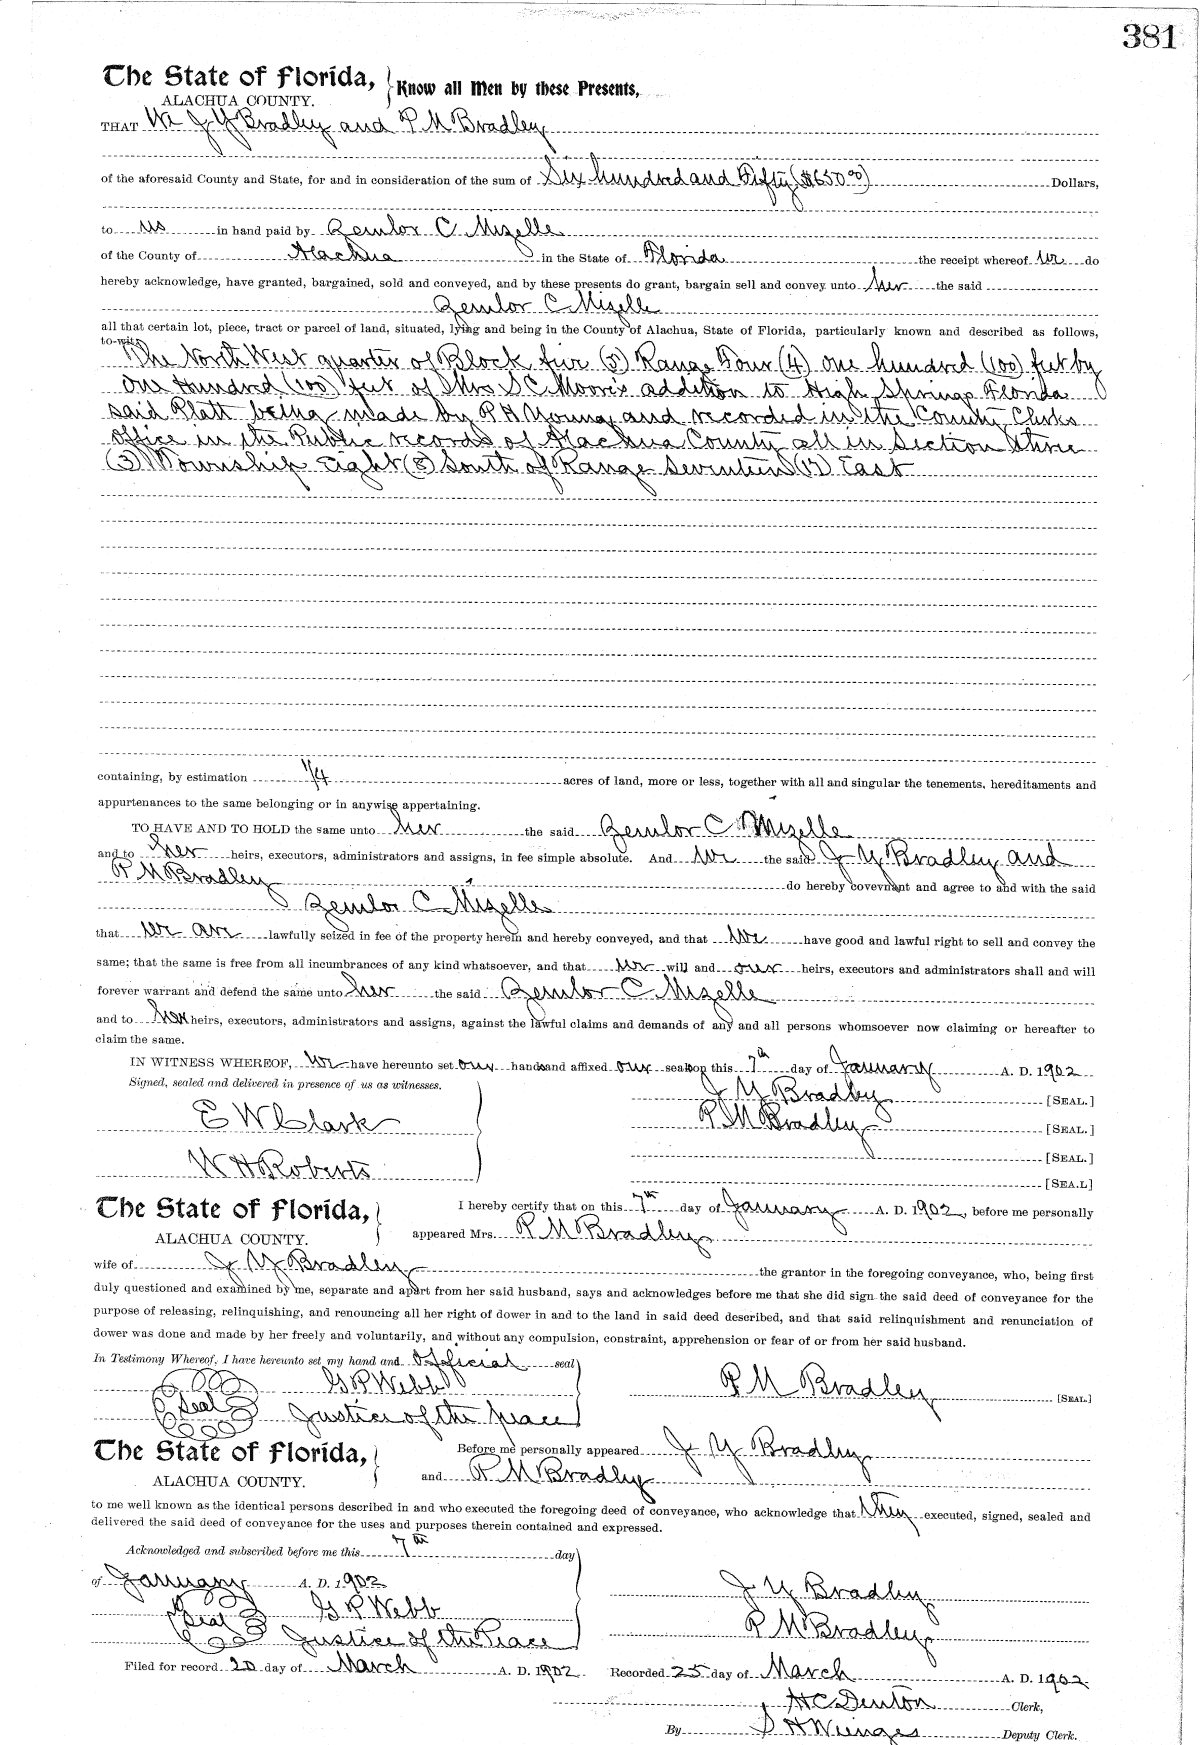 381
The State of Florida, Know all Men by these Presents,
ALACHUA COUNTY.
THAT We J Y Bradley and P M Bradley
of the aforesaid County and State, for and in consideration of the sum of Six hundred and Fifty ($650.00) Dollars,
to us in hand paid by Zemlor C Mizelle
of the County of Alachua in the State of Florida the receipt whereof we do
hereby acknowledge, have granted, bargained, sold and conveyed, and by these presents do grant, bargain sell and convey unto her the said
Zemlor C Mizelle
all that certain lot, piece, tract or parcel of land, situated, lying and being in the County of Alachua, State of Florida, particularly known and described as follows,
to-wit:
The North West quarter of Block five (5) Range Four (4) one hundred (100) feet by
One Hundred (100) feet of Mrs S C Moore's addition to High Springs Florida
said Platt being made by P H Young and recorded in the County Clerks
office in the Public records of Alachua County all in Section three
(3) Township Eight (8) South of Range Seventeen (17) East
containing, by estimation 1/4 acres of land, more or less, together with all and singular the tenements, hereditaments and
appurtenances to the same belonging or in anywise appertaining.
TO HAVE AND TO HOLD the same unto her the said Zemlor C Mizelle
and to her heirs, executors, administrators and assigns, in fee simple absolute. And We the said J Y Bradley and
P M Bradley do hereby covevnant and agree to and with the said
Zemlor C Mizelle
that we are lawfully seized in fee of the property herein and hereby conveyed, and that We have good and lawful right to sell and convey the
same; that the same is free from all incumbrances of any kind whatsoever, and that we will and our heirs, executors and administrators shall and will
forever warrant and defend the same unto her the said Zemlor C Mizelle
and to her heirs, executors, administrators and assigns, against the lawful claims and demands of any and all persons whomsoever now claiming or hereafter to
claim the same.
IN WITNESS WHEREOF, we have hereunto set our hands and affixed our seals on this 7th day of January A. D. 1902
Signed, sealed and delivered in presence of us as witnesses.
J Y Bradley [SEAL.]
E W Clark P M Bradley [SEAL.]
[SEAL.]
W H Roberts
[SEA.L]
The State of Florida, I hereby certify that on this 7th day of January A. D. 1902, before me personally
ALACHUA COUNTY. appeared Mrs. P M Bradley
wife of J Y Bradley the grantor in the foregoing conveyance, who, being first
duly questioned and examined by me, separate and apart from her said husband, says and acknowledges before me that she did sign the said deed of conveyance for the
purpose of releasing, relinquishing, and renouncing all her right of dower in and to the land in said deed described, and that said relinquishment and renunciation of
dower was done and made by her freely and voluntarily, and without any compulsion, constraint, apprehension or fear of or from her said husband.
In Testimony Whereof, I have hereunto set my hand and Official seal
G P Webb P M Bradley [SEAL]
Seal Justice of the peace
The State of Florida, Before me personally appeared J Y Bradley
ALACHUA COUNTY. and P M Bradley
to me well known as the identical persons described in and who executed the foregoing deed of conveyance, who acknowledge that they executed, signed, sealed and
delivered the said deed of conveyance for the uses and purposes therein contained and expressed.
Acknowledged and subscribed before me this 7th day
of January A. D. 1902 J Y Bradley
Seal G P Webb P M Bradley
Justice of the Peace
Filed for record 20 day of March A. D. 1902 Recorded 25 day of March A. D. 1902
H C Denton Clerk,
By S H Wienges Deputy Clerk.